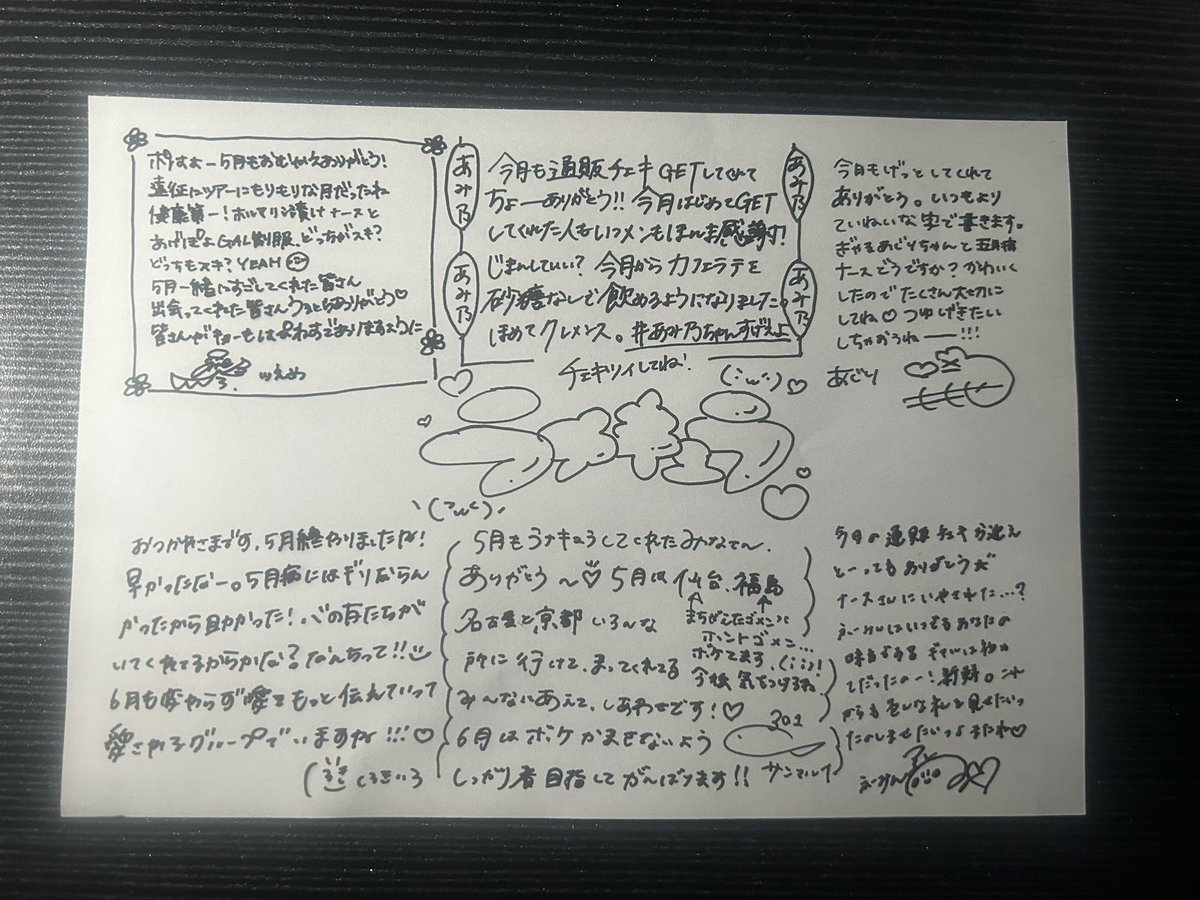 ポすよー5月もおむかえありがとう!
遠征にツアーにもりもりな月だったね
健康第一!ホルマリン漬けナースと
あげぽよGAL制服、どっちがスキ?
どっちもスキ?YEAH
5月一緒にすごしてくれた皆さん
出会ってくれた皆さん ありがとう♡
皆さんが でありますように
あみ乃
あみ乃
今月も通販チェキGETしてくれて
ちょーありがとう!!今月はじめてGET
してくれた人もいつメンもほんま感謝!
じまんしていい?今月からカフェラテを
砂糖なしで飲めるようになりました。
ほめてクレメンス。#あみ乃ちゃんすげえよ
チェキツイしてね!
あみ乃
あみ乃
今月もげっとしてくれて
ありがとう。いつもより
ていねいな字で書きます。
ぎゃるあじりちゃんと五月病
ナースどうですか?かわいく
したのでたくさん大切に
してね♡つゆげきたい
しちゃおうねー!!!
あじり
(:'ω':)♡
おつかれさまです、5月終わりましたね!
早かったなー。5月病にはギリならん
かったから助かった!心の友たちが
いてくれてるからかな?なんちって!!
6月も変わらず愛をもっと伝えていって
愛されるグループでいますね!!!♡
しろきいろ
5月もうけしてくれたみんなさん、
ありがとう〜♡5月は仙台、福島
名古屋と京都いろ〜な
所に行けて、まってくれてる
みんなにあえて、しあわせです!♡
6月はボケかまさないよう
しっかり者目指してがんばります!!
まちがえたゴメンネ
ホントゴメン...
ボケてます、(;;)!
今後気をつけるね
301
サンマルイ
今月の通販チェキお迎え
とーってもありがとう☆
ナースさんにいやされた...?
ふーみんはいつもあなたの
味方よ
てだったのー!新鮮。
色んな私を見せたいっ
たのしませたいっ
ふーみん